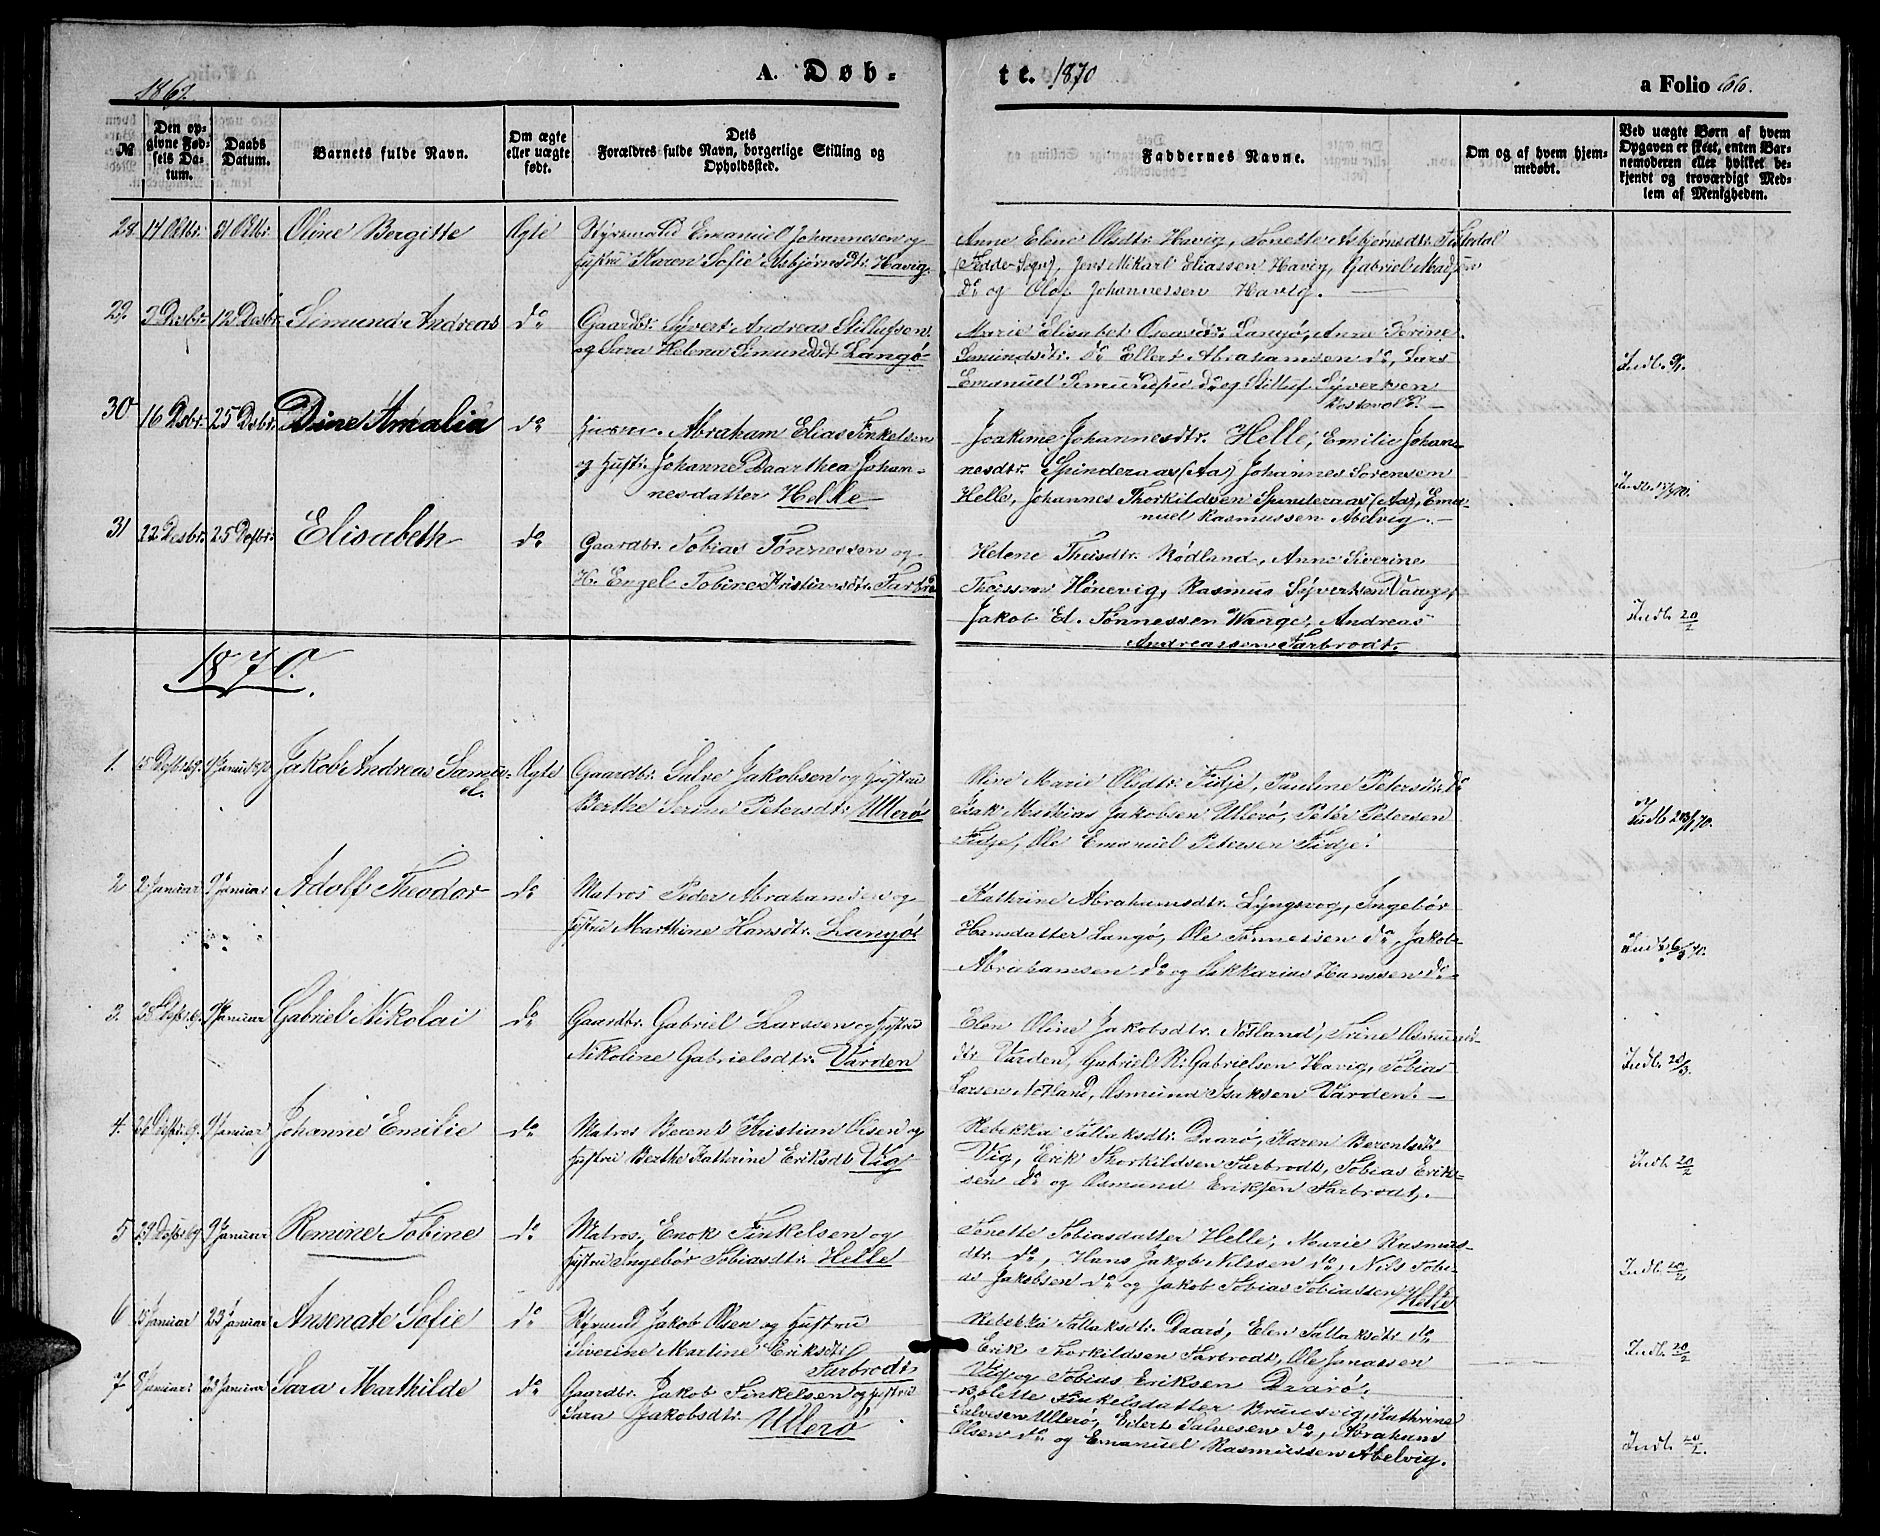 1869.
A. Døb-
te. 1870
a Folio 66.
№
Den op-
givne Fød-
sels Da-
tum.
Daabs
Datum.
Barnets fulde Navn.
Om ægte
eller uægte
født.
Dets
Forældres fulde Navn, borgerlige Stilling og
Opholdssted.
Faddernes Navne.
Om og af hvem hjem-
medøbt.
Ved uægte Børn af hvem
Opgaven er skeet, enten Bar-
nemoderen eller hvilket be-
kjendt og troværdigt Med-
lem af Menigheden.
28 17 Oktbr. 31 Oktbr. Oline Bergitte Ægte Styrmand Emanuel Johannesen og
Hustru Karen Sofie Asbjørnsdtr. Havig.
Anne Elene Olsdtr. Havig, Tonette Asbjørnsdtr. Fistedal
(Fedde Sogn), Jens Mikael Eliassen Havig, Gabriel Madsen
do og Olof Johannessen Havig.
29. 9 Desbr. 12 Desbr. Simund Andreas do Gaardbr. Syvert Andreas Stillufsen
og Sara Helena Simundsdt Langø
Marie Elisabet Oseasdtr. Langø, Anne Serine
Simundsdtr. do Ellert Abrahamsen do, Lars
Emanuel Simundsen do og Stilluf Syvertsen
Kostvold.
Indb. 9/1.
30 16 Dsbr. 25 Dsbr. Dine Amalia do Abraham Elias Finkelsen
og Hustr. Johanne Daarthea Johan-
nesdatter Helle
Joakime Johannesdtr. Helle, Emilie Johan-
nesdtr. Spinderaas (Aa) Johannes Sørensen
Helle, Johannes Thorkildsen Spinderaas (Aa), Ema-
nuel Rasmussen Abelvig.
31 22 Desbr. 25 Desbr. Elisabeth do Gaardbr. Tobias Tønnessen og
H. Engel Tobine Kristiansdtr. Farbro
Helene Theisdtr. Rødland, Anne Siverine
Theissen Hønevig, Rasmus Syvertsen Vange,
Jakob El. Tønnessen Wange, Andreas
Andreassen Farbrodt.
Indb. 20/2
1870.
1. 15 Desbr. 69. 1 Janu 1870 Jakob Andreas Samu-
el. Ægte Gaardbr. Salve Jakobsen og Hustru
Berthe Serine Petersdtr. Ullerø
Oline Marie Olsdtr. Fidje, Pauline Petersdtr. do
Isak Mathias Jakobsen Ullerø, Peter Petersen
Fidje, Ole Emanuel Petersen Fidje.
2 2 Januar 9 Januar Adolf Theodor do Matros Peder Abrahamsen og
Hustru Marthine Hansdtr. Langø
Kathrine Abrahamsdtr. Lyngsvog, Ingebor
Hansdatter Langø, Ole Tønnessen do, Jakob
Abrahamsen do og Sakkarias Hanssen do
3. 28 Desbr. 69. 9 Januar Gabriel Nikolai do Gaardbr. Gabriel Larssen og Hustru
Nikoline Gabrielsdtr. Varden
Elen Oline Jakobsdtr. Notland, Trine Osmunds-
dtr. Varden, Gabriel R. Gabrielsen Havig, Tobias
Larsen Notland, Osmund Isaksen Varden.
Indb. 20/3.
4. 26 Desbr. 69. 9 Januar Johanne Emilie do Matros Berent Kristian Olsen og
Hustru Berthe Katterine Eriksdt Vig
Rebekka Tallaksdtr. Daarø, Karen Berentsdtr
Vig, Erik Thorkildsen Farbrodt, Tobias Erik-
sen do og Osmund Eriksen Farbrodt.
Indb. 20/2
5 29 Desbr. 69. 9 Januar Remine Tobine do Matros, Enok Finkelsen og
Hustru Ingebør Tobiasdtr. Helle
Tonette Tobiasdatter Helle, Marie Rasmus-
dtr. do, Hans Jakob Nilssen do, Nils Tobi-
as Jakobsen do og Jakob Tobias Tobiassen Helle
Indb. 20/2
6 15 Januar 23 Januar Ansenate Sofie do Styrmand Jakob Olsen og Hustru
Siverine Martine Eriksdtr.
Farbrodt
Rebekka Tallaksdtr. Daarø, Elen Tallaksdtr do
Erik Thorkildsen Farbrodt, Ole Janassen
Vig og Tobias Eriksen Daarø.
Indb. 20/2
7 8 Januar 23 Januar Sara Marthilde do Gaardbr. Jakob Finkelsen og Hustru
Sara Jakobsdtr. Ullerø
Bolette Finkelsdatter Bruusvig, Kathrine
Salvesen Ullerø, Eilert Salvesen do, Abraham
Olsen do og Emanuel Rasmussen Abelvig.
Indb. 20/2.